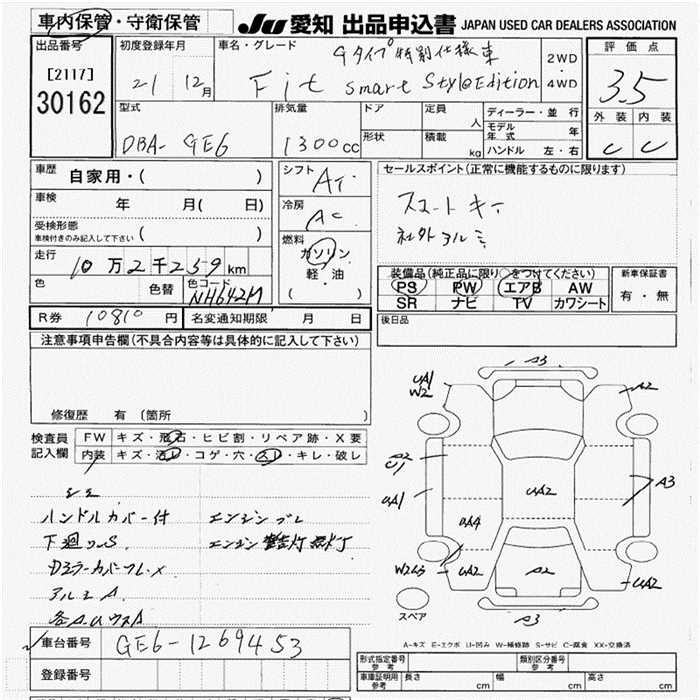 車内保管・守衛保管
JU 愛知 出品申込書 JAPAN USED CAR DEALERS ASSOCIATION
出品番号
[2117]
30162
初度登録年月
21 12月
車名・グレード
Gタイプ特別仕様車
Fit smart Style Edition
2WD
・
4WD
評価点
3.5
外装 内装
C C
型式
DBA- GE6
排気量
1300cc
ドア
形状
定員 人
積載 kg
ディーラー・並行
モデル年式 年
ハンドル 左・右
車歴
自家用・( )
車検 年 月( 日)
受検形態
車検付きのみ記入して下さい ( )
走行
10万2千259km
色 色替 色コード
NH642M
シフト
AT
冷房
AC
燃料
ガソリン
軽・油
( )
セールスポイント(正常に機能するものに限ります)
スマートキー
社外アルミ
装備品(純正品に限り○をつけてください)
PS PW エアB AW
SR ナビ TV カワシート
新車保証書
有・無
R券 10810円 名変通知期限 月 日
後日品
注意事項申告欄(不具合内容等は具体的に記入して下さい)
修復歴 有 (箇所 )
検査員記入欄
FW キズ・飛石・ヒビ割・リペア跡・X要
内装 キズ・汚レ・コゲ・穴・スレ・キレ・破レ
ハンドルカバー付 エンジンブレ
下廻りS エンジン警告灯点灯
ドミラーカバーフレ.X
アルミA
A3
UA1
W2
A2
A2
U1
UA1
UA2
UA4
A3
W2U3
UA2
A2
UA2
A3
スペア
A-キズ E-エクボ U-凹み W-補修跡 S-サビ C-腐食 XX-交換済
車台番号 GE6-1269453
登録番号
形式指定番号 参考
類別区分番号 参考
車庫証明用 参考
長さ cm 幅 cm 高さ cm